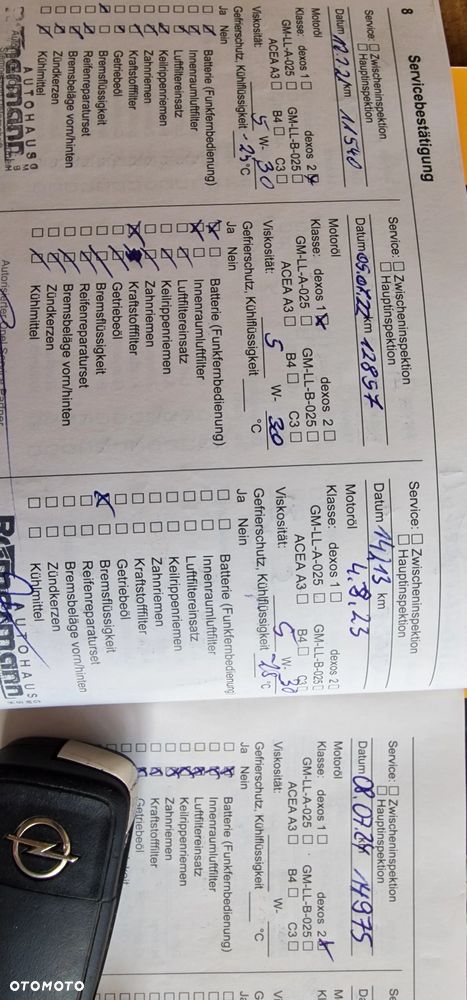 8
Servicebestätigung
Service: □ Zwischeninspektion
□ Hauptinspektion
km 11540
Motoröl
Klasse: dexos 1 □ dexos 2 ☒
GM-LL-A-025 □ GM-LL-B-025 □
ACEA A3 □ B4 □ C3 □
Viskosität: 5 W- 30
Gefrierschutz, Kühlflüssigkeit -25 °C
Ja Nein
Batterie (Funkfernbedienung)
Innenraumluftfilter
Luftfiltereinsatz
Keilrippenriemen
Zahnriemen
Kraftstofffilter
Getriebeöl
Bremsflüssigkeit
Reifenreparaturset
Bremsbeläge vorn/hinten
Zündkerzen
Kühlmittel
AUTOHAUS
Service: □ Zwischeninspektion
□ Hauptinspektion
Datum 05.07.22 km 12857
Motoröl
Klasse: dexos 1 ☒ dexos 2 □
GM-LL-A-025 □ GM-LL-B-025 □
ACEA A3 □ B4 □ C3 □
Viskosität: 5 W- 30
Gefrierschutz, Kühlflüssigkeit °C
Ja Nein
Batterie (Funkfernbedienung)
Innenraumluftfilter
Luftfiltereinsatz
Keilrippenriemen
Zahnriemen
Kraftstofffilter
Getriebeöl
Bremsflüssigkeit
Reifenreparaturset
Bremsbeläge vorn/hinten
Zündkerzen
Kühlmittel
Autorisierter Opel Service Partner
Service: □ Zwischeninspektion
□ Hauptinspektion
Datum 14113 km
4.8.23
Motoröl
Klasse: dexos 1 □ dexos 2 □
GM-LL-A-025 □ GM-LL-B-025 □
ACEA A3 □ B4 □ C3 □
Viskosität: 5 W- 30
Gefrierschutz, Kühlflüssigkeit °C
Ja Nein
Batterie (Funkfernbedienung
Innenraumluftfilter
Luftfiltereinsatz
Keilrippenriemen
Zahnriemen
Kraftstofffilter
Getriebeöl
Bremsflüssigkeit
Reifenreparaturset
Bremsbeläge vorn/hinten
Zündkerzen
Kühlmittel
AUTOHAUS
Service: □ Zwischeninspektion
□ Hauptinspektion
Datum 08.07.24 14975
Motoröl
Klasse: dexos 1 □ dexos 2 ☒
GM-LL-A-025 □ GM-LL-B-025 □
ACEA A3 □ B4 □ C3 □
Viskosität: W-
Gefrierschutz, Kühlflüssigkeit °C
Ja Nein
Batterie (Funkfernbedienung)
Innenraumluftfilter
Luftfiltereinsatz
Keilrippenriemen
Zahnriemen
Kraftstofffilter
Getriebeöl
OTOMOTO